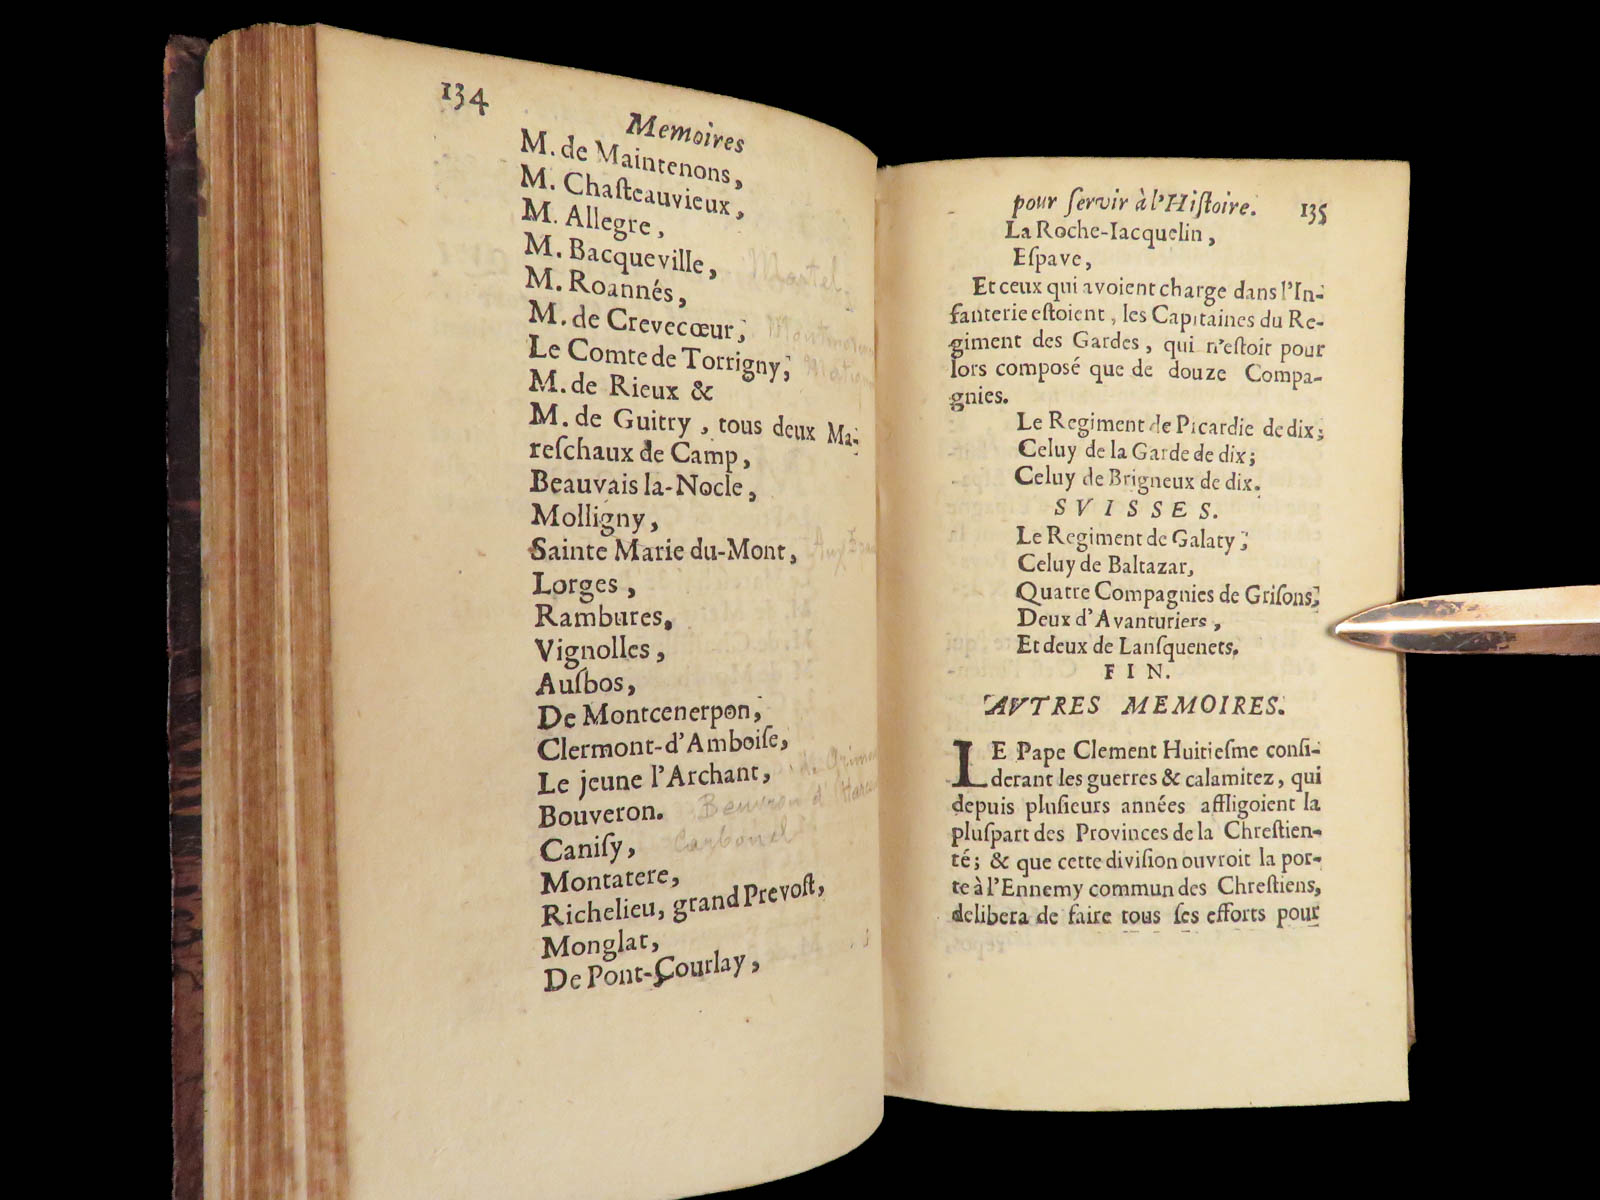 134
Memoires
M. de Maintenons,
M. Chaſteauvieux,
M. Allegre,
M. Bacqueville, Martel
M. Roannés,
M. de Crevecœur;
Le Comte de Torrigny;
M. de Rieux &
M. de Guitry, tous deux Ma-
reſchaux de Camp,
Beauvais la-Nocle,
Molligny,
Sainte Marie du-Mont,
Lorges,
Rambures,
Vignolles,
Auſbos,
De Montcenerpon,
Clermont-d'Amboiſe,
Le jeune l'Archant,
Bouveron. Beuvron d'
Caniſy, Carbonel
Montatere,
Richelieu, grand Prevoſt,
Monglat,
De Pont-Çourlay,
pour ſervir à l'Hiſtoire. 135
La Roche-Iacquelin,
Eſpave,
Et ceux qui avoient charge dans l'In-
fanterie eſtoient, les Capitaines du Re-
giment des Gardes, qui n'eſtoit pour
lors composé que de douze Compa-
gnies.
Le Regiment de Picardie de dix;
Celuy de la Garde de dix;
Celuy de Brigneux de dix.
SVISSES.
Le Regiment de Galaty;
Celuy de Baltazar,
Quatre Compagnies de Griſons;
Deux d'Avanturiers,
Et deux de Lanſquenets.
FIN.
AVTRES MEMOIRES.
LE Pape Clement Huitieſme conſi-
derant les guerres & calamitez, qui
depuis pluſieurs années affligoient la
pluſpart des Provinces de la Chreſtien-
té; & que cette diviſion ouvroit la por-
te à l'Ennemy commun des Chreſtiens,
delibera de faire tous ſes efforts pour